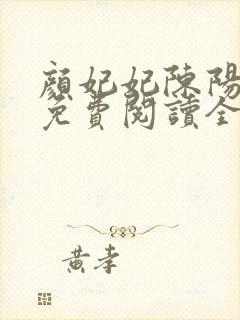 顏妃妃陳陽
免費閱讀全
黃孝